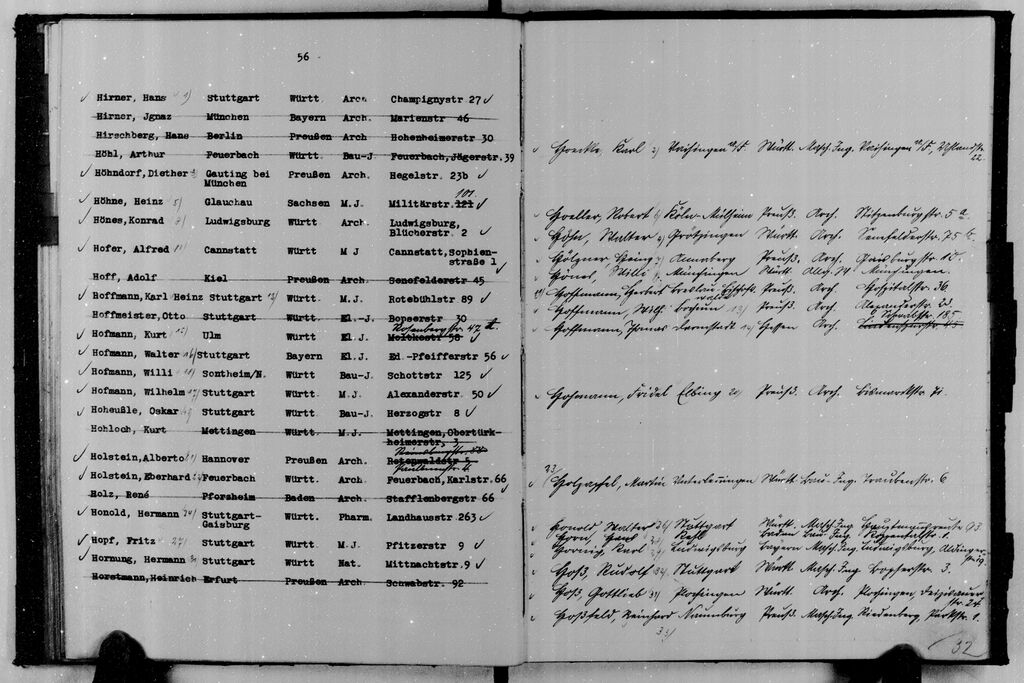 56
Hirner, Hans Stuttgart Württ Arch Champignystr 27
Hirner, Jgnaz München Bayern Arch. Marienstr 46
Hirschberg, Hans Berlin Preußen Arch Hohenheimerstr 30
Höhl, Arthur Feuerbach Württ. Bau-J. Feuerbach, Jägerstr. 39
Höhndorf, Diether Gauting bei München Preußen Arch. Hegelstr. 23b
101
Höhne, Heinz 5) Glauchau Sachsen M.J. Militärstr. 121
Hönes, Konrad Ludwigsburg Württ Arch. Ludwigsburg, Blücherstr. 2
Hofer, Alfred Cannstatt Württ M J Cannstatt, Sophien-straße 1
Hoff, Adolf Kiel Preußen Arch. Senefelderstr 45
Hoffmann, Karl Heinz Stuttgart Württ. M.J. Rotebühlstr 89
Hoffmeister, Otto Stuttgart Württ El.-J. Bopserstr 30
Rosenbergstr. 47
Hofmann, Kurt 15) Ulm Württ. El J. Moltkestr 58
Hofmann, Walter 16) Stuttgart Bayern El J. Ed.-Pfeifferstr 56
Hofmann, Willi Sontheim/N. Württ Bau-J Schottstr 125
Hofmann, Wilhelm Stuttgart Württ. M.J. Alexanderstr. 50
Hoheußle, Oskar Stuttgart Württ Bau-J. Herzogstr 8
Hohloch, Kurt Mettingen Württ. M.J. Mettingen, Obertürk-heimerstr, 3
Holstein, Alberto Hannover Preußen Arch. Rotenwaldstr
Holstein, Eberhard Feuerbach Württ. Arch. Feuerbach, Karlstr. 66
Holz, René Pforzheim Baden Arch. Stafflenbergstr 66
Honold, Hermann Stuttgart-Gaisburg Württ. Pharm. Landhausstr. 263
Hopf, Fritz 27) Stuttgart Württ M.J. Pfitzerstr 9
Hornung, Hermann Stuttgart Württ Nat. Mittnachtstr. 9
Horstmann, Heinrich Erfurt Preußen Arch. Schwabstr. 92
Karl Vaihingen a/F. Württ. Masch. Ing. Vaihingen a/F, Uhlandstr. 22.
Hoeller, Robert Köln-Mülheim Preuß. Arch. Stitzenburgstr. 5a
Walter Grötzingen Württ. Arch. Senefelderstr. 75
Hölzner Heinz Annaberg Preuß. Arch. Gaisburgstr.
Hönes, Willi Münsingen Württ. Münsingen.
Hoffmann, Herbert Breslau Preuß. Arch. Hospitalstr. 36.
Hoffmann, Wilh. Bochum 13) Preuß. Arch. Alexanderstr. 23.
Hoffmann, Thomas Darmstadt 14) Hessen Arch. Schwabstr. 185
Hohmann, Fridel Elbing Preuß. Arch. Bismarckstr.
23)
Holzapfel, Martin Württ Bau-Ing. Traubenstr. 6
Honold, Walter Stuttgart Württ. Masch. Ing. Hauptmannsreute 93
Horn, Kehl Baden Bau-Ing. 1.
Hornig, Karl Ludwigsburg Bayern Masch. Ing. Ludwigsburg, Aldinger-str.
Hoß, Rudolf Stuttgart Württ Masch. Ing. Bopserstr. 3.
Hoß, Gottlieb Plochingen Württ. Arch. Plochingen, str. 24.
Hoßfeld, Reinhard Naumburg Preuß. Masch. Ing. Riedenberg, Parkstr. 1.
33)
32